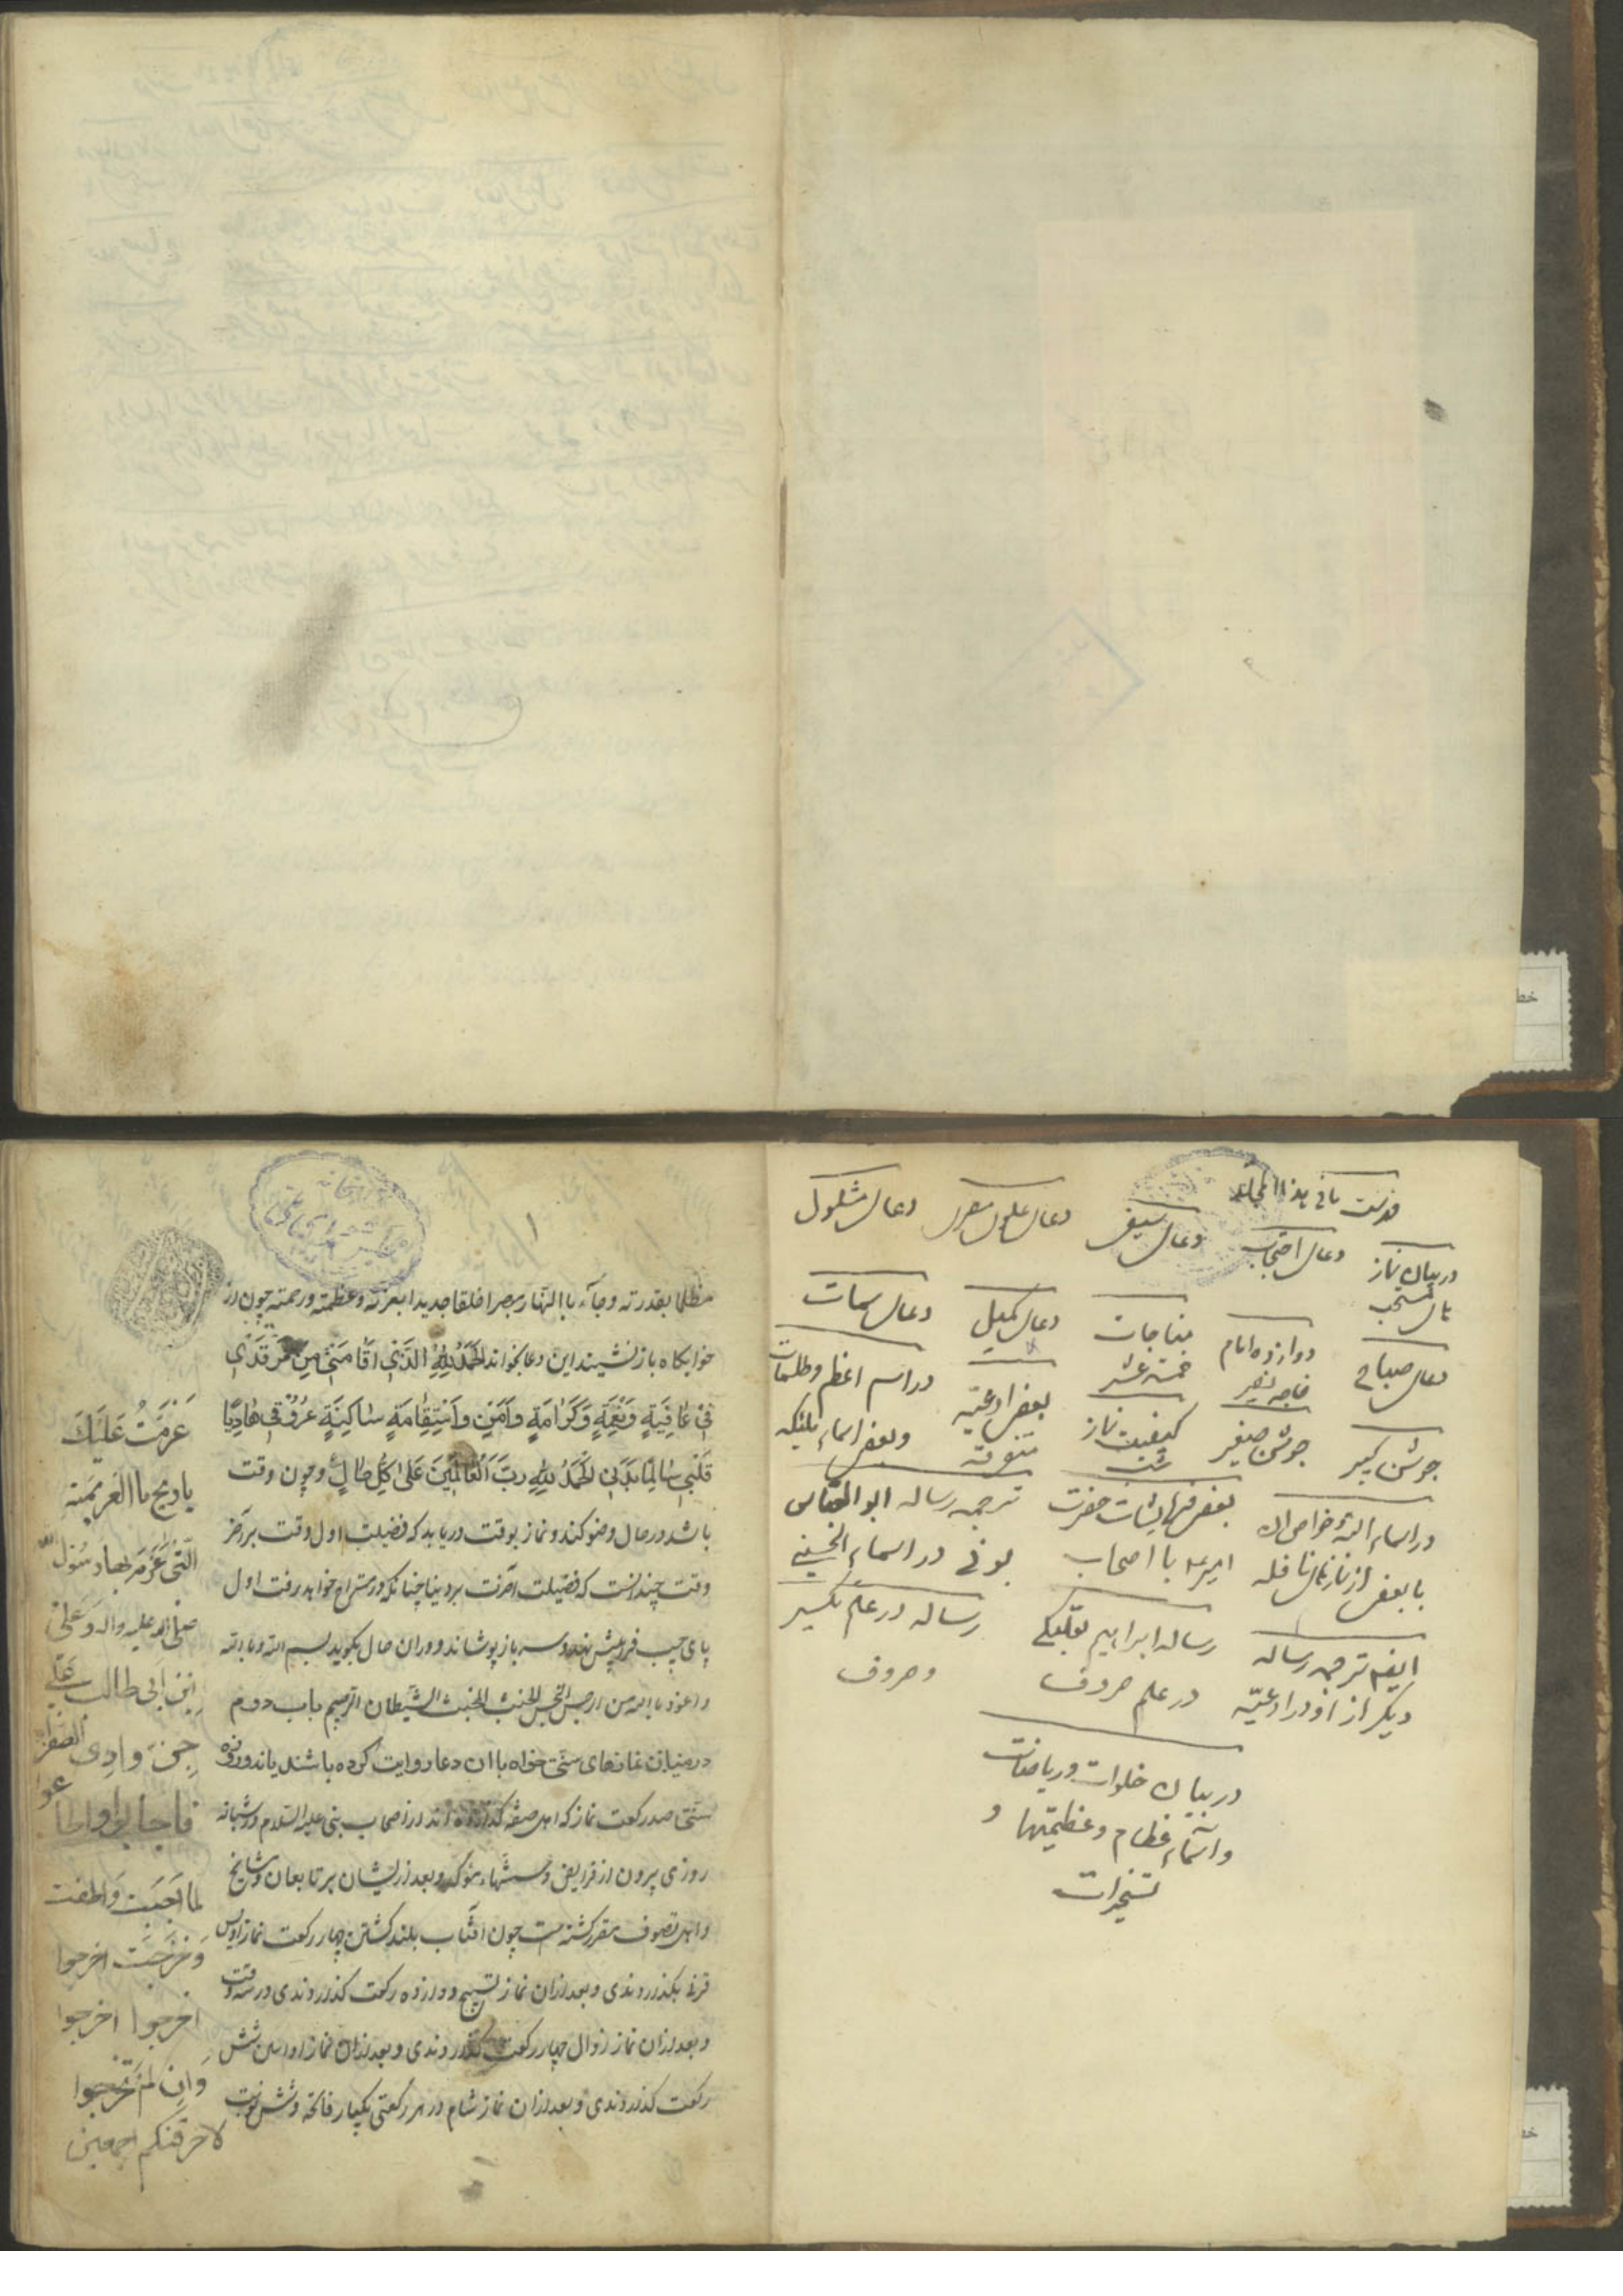 فهرست مافی هذا المجلد
در بیان نماز
های مستحب
دعای احتجاب
دعای سیفی
دعای علوی مصری
دعای مشلول
دعای صباح
دوازده امام
خاجه نصیر
مناجات
خمسة عشر
دعای کمیل
دعای سمات
جوشن کبیر
جوشن صغیر
کیفیت نماز
شب
بعض ادعیّه
متفرقه
در اسم اعظم و طلسمات
وبعض اسماء ملئکه
در اسماء الله و خواص ان
با بعض از نمازهای نافله
بعض فرمایشات حضرت
امیر علیه با اصحاب
ترجمه رساله ابو العباس
بونی در اسماء الحسنی
ایضا ترجمه رساله
دیگر از اوراد و ادعیّه
رساله ابراهیم
در علم حروف
رساله در علم تکسیر
و حروف
در بیان خلوات و ریاضات
واسماء عظام وعظیمتها و
تسخیرات
مظلما بقدرته وجآء باالنهار مبصرا خلقا جدیدا بعزته وعظمته ورحمته چون از
خوابکاه باز نشیند این دعا بخواند اَلحَمدُ لِلّهِ الَّذی اَقامَنی مِن مَرقَدی
فی عافِیَةٍ وَنِعمَةٍ وَکَرامَةٍ وَاَمنٍ وَاستِقامَةٍ ساکِنَةٍ عُرُوقی هادِیًا
قَلبی سالِمًا بَدَنی الحَمدُ لِلّهِ رَبِّ العالَمینَ عَلی کُلِّ حالٍ وچون وقت
باشد در حال وضو کند و نماز بوقت دریابد که فضیلت اول وقت بر آخر
وقت چندانست که فضیلت آخرت بر دنیا چنانکه در مستراح خواهد رفت اول
پای چپ فرا پیش نهد و سر باز پوشاند و دران حال بکوید بسم الله و بالله
و اعوذ باالله من الرجس النجس الخبیث المخبث الشیطان الرجیم باب دوم
در میان نمازهای سنتی خواه با ان دعا روایت کرده باشند یا نه و روزه
سنتی صد رکعت نماز که اهل صفه کذارده اند از اصحاب نبی علیه السلام در شبانه
روزی بیرون از فرایض و سنتهاء مؤکد و بعد از ایشان بر تابعان و مشایخ
و اهل تصوف مقرر کشته ست چون افتاب بلند کشتی چهار رکعت نماز اویس
قرنی بکذاردندی و بعد ازان نماز تسبیح و دوازده رکعت کذاردندی در سه وقت
و بعد ازان نماز زوال چهار رکعت کذاردندی و بعد ازان نماز اوابین شش
رکعت کذاردندی و بعد ازان نماز شام در هر رکعتی یکبار فاتحه و شش نوبت
عَزَمتُ عَلَیكَ
یا ریح باالعزیمة
الَّتی عَزَمَ بها رسُول الله
صلی الله علیه واله وَعَلیّ
بن اَبی طالب علی
جِنّ وادی الصفراء
فاجابوا واطاعوا
لما اجبت واطعت
وَخرَجت اخرجوا
اخرجوا اخرجوا
وَاِن لَم تَخرجوا
لاحرقنکم اجمعین